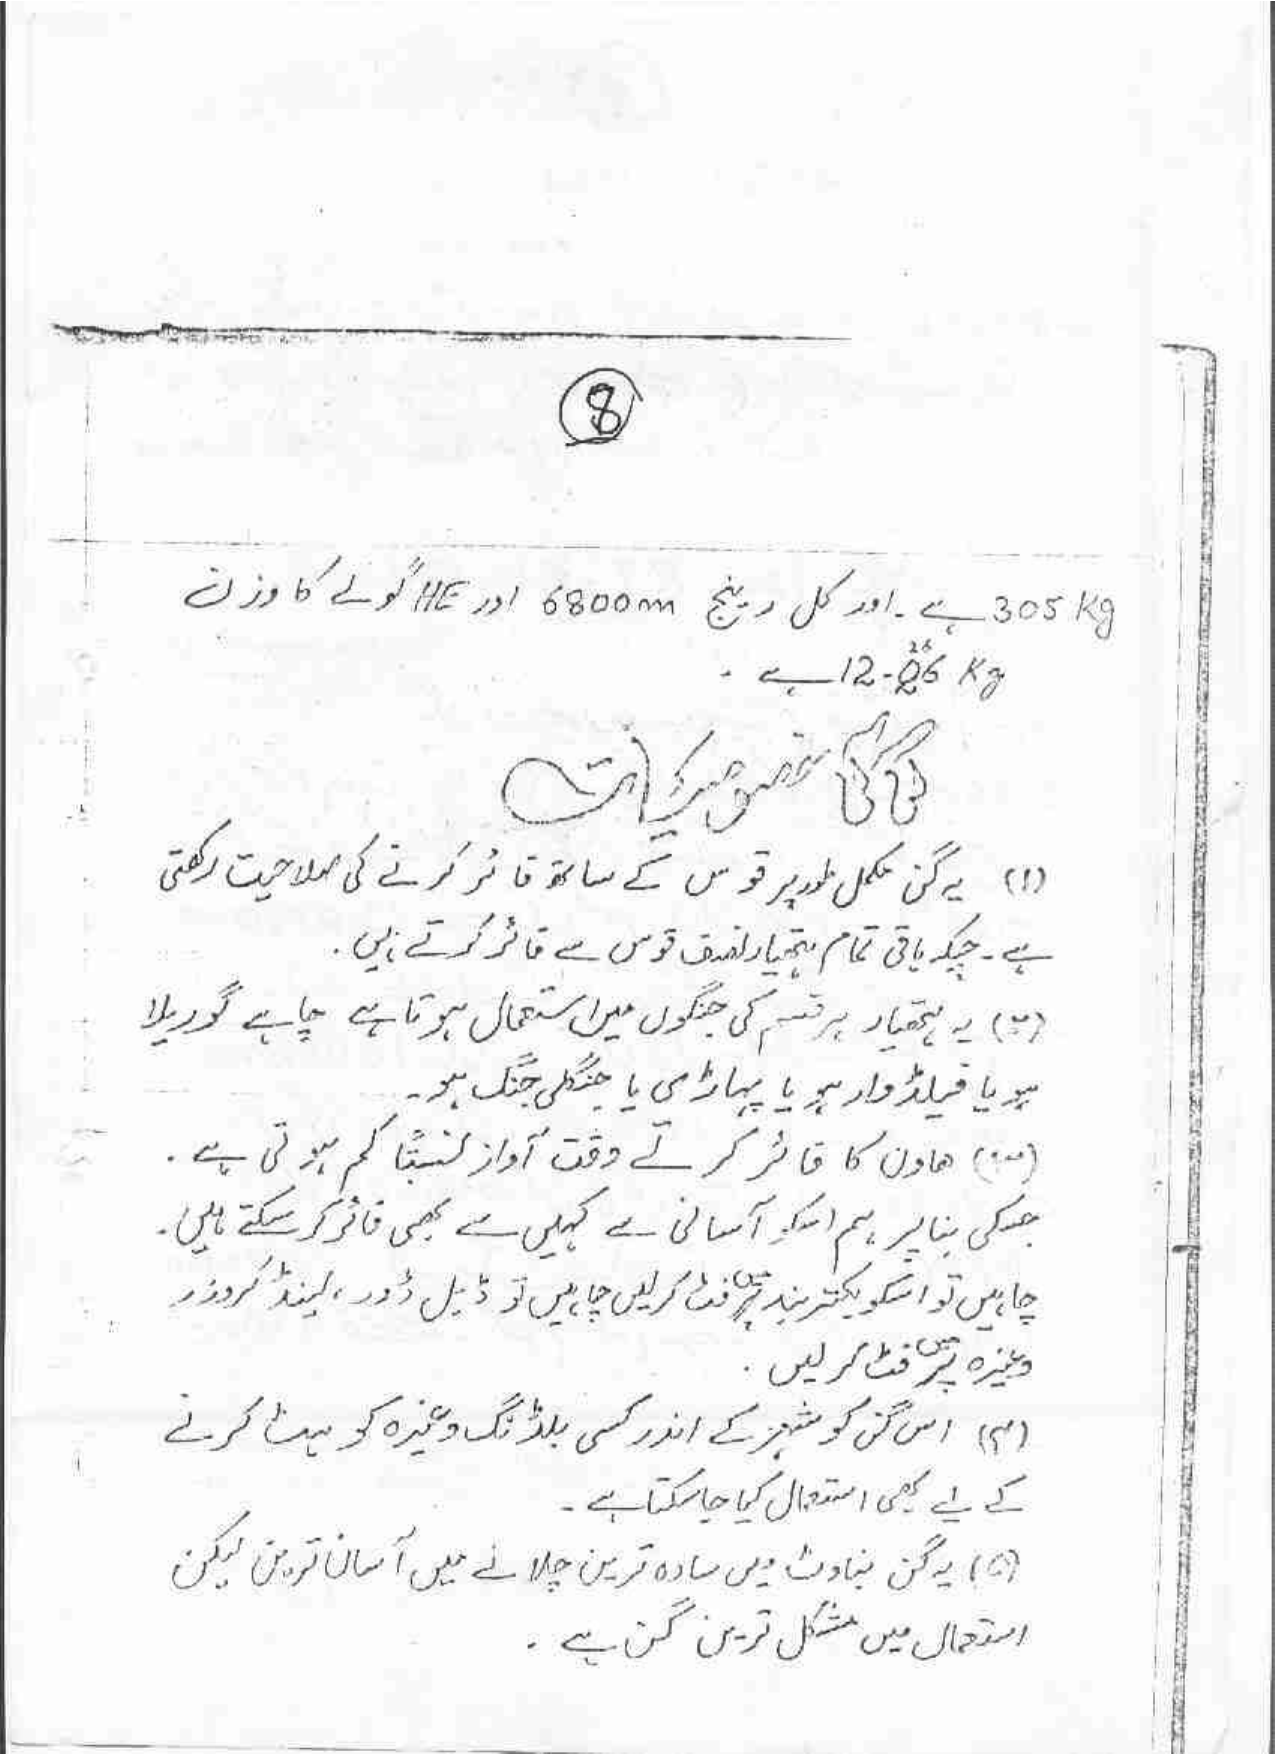 8
305 Kg ہے ۔ اور کل رینج 6800m اور HE گولے کا وزن
12-26 Kg ہے ۔
گن کی خصوصیات
(۱) یہ گن مکمل طور پر قوس کے ساتھ فائر کرنے کی صلاحیت رکھتی
ہے ۔ جبکہ باقی تمام ہتھیار نصف قوس سے فائر کرتے ہیں ۔
(۲) یہ ہتھیار ہر قسم کی جنگوں میں استعمال ہوتا ہے چاہے گوریلا
ہو یا فیلڈ وار ہو یا پہاڑی یا جنگلی جنگ ہو ۔
(۳) ھاون کا فائر کرتے وقت آواز نسبتاً کم ہوتی ہے ۔
جسکی بنا پر ہم اسکو آسانی سے کہیں سے بھی فائر کر سکتے ہیں ۔
چاہیں تو اسکو بکتر بند میں فٹ کرلیں چاہیں تو ڈبل ڈور ، لینڈ کروزر
وغیرہ میں فٹ کر لیں ۔
(۴) اس گن کو شہر کے اندر کسی بلڈنگ وغیرہ کو ہٹ کرنے
کے لیے بھی استعمال کیا جا سکتا ہے ۔
(۵) یہ گن بناوٹ میں سادہ ترین چلانے میں آسان ترین لیکن
استعمال میں مشکل ترین گن ہے ۔